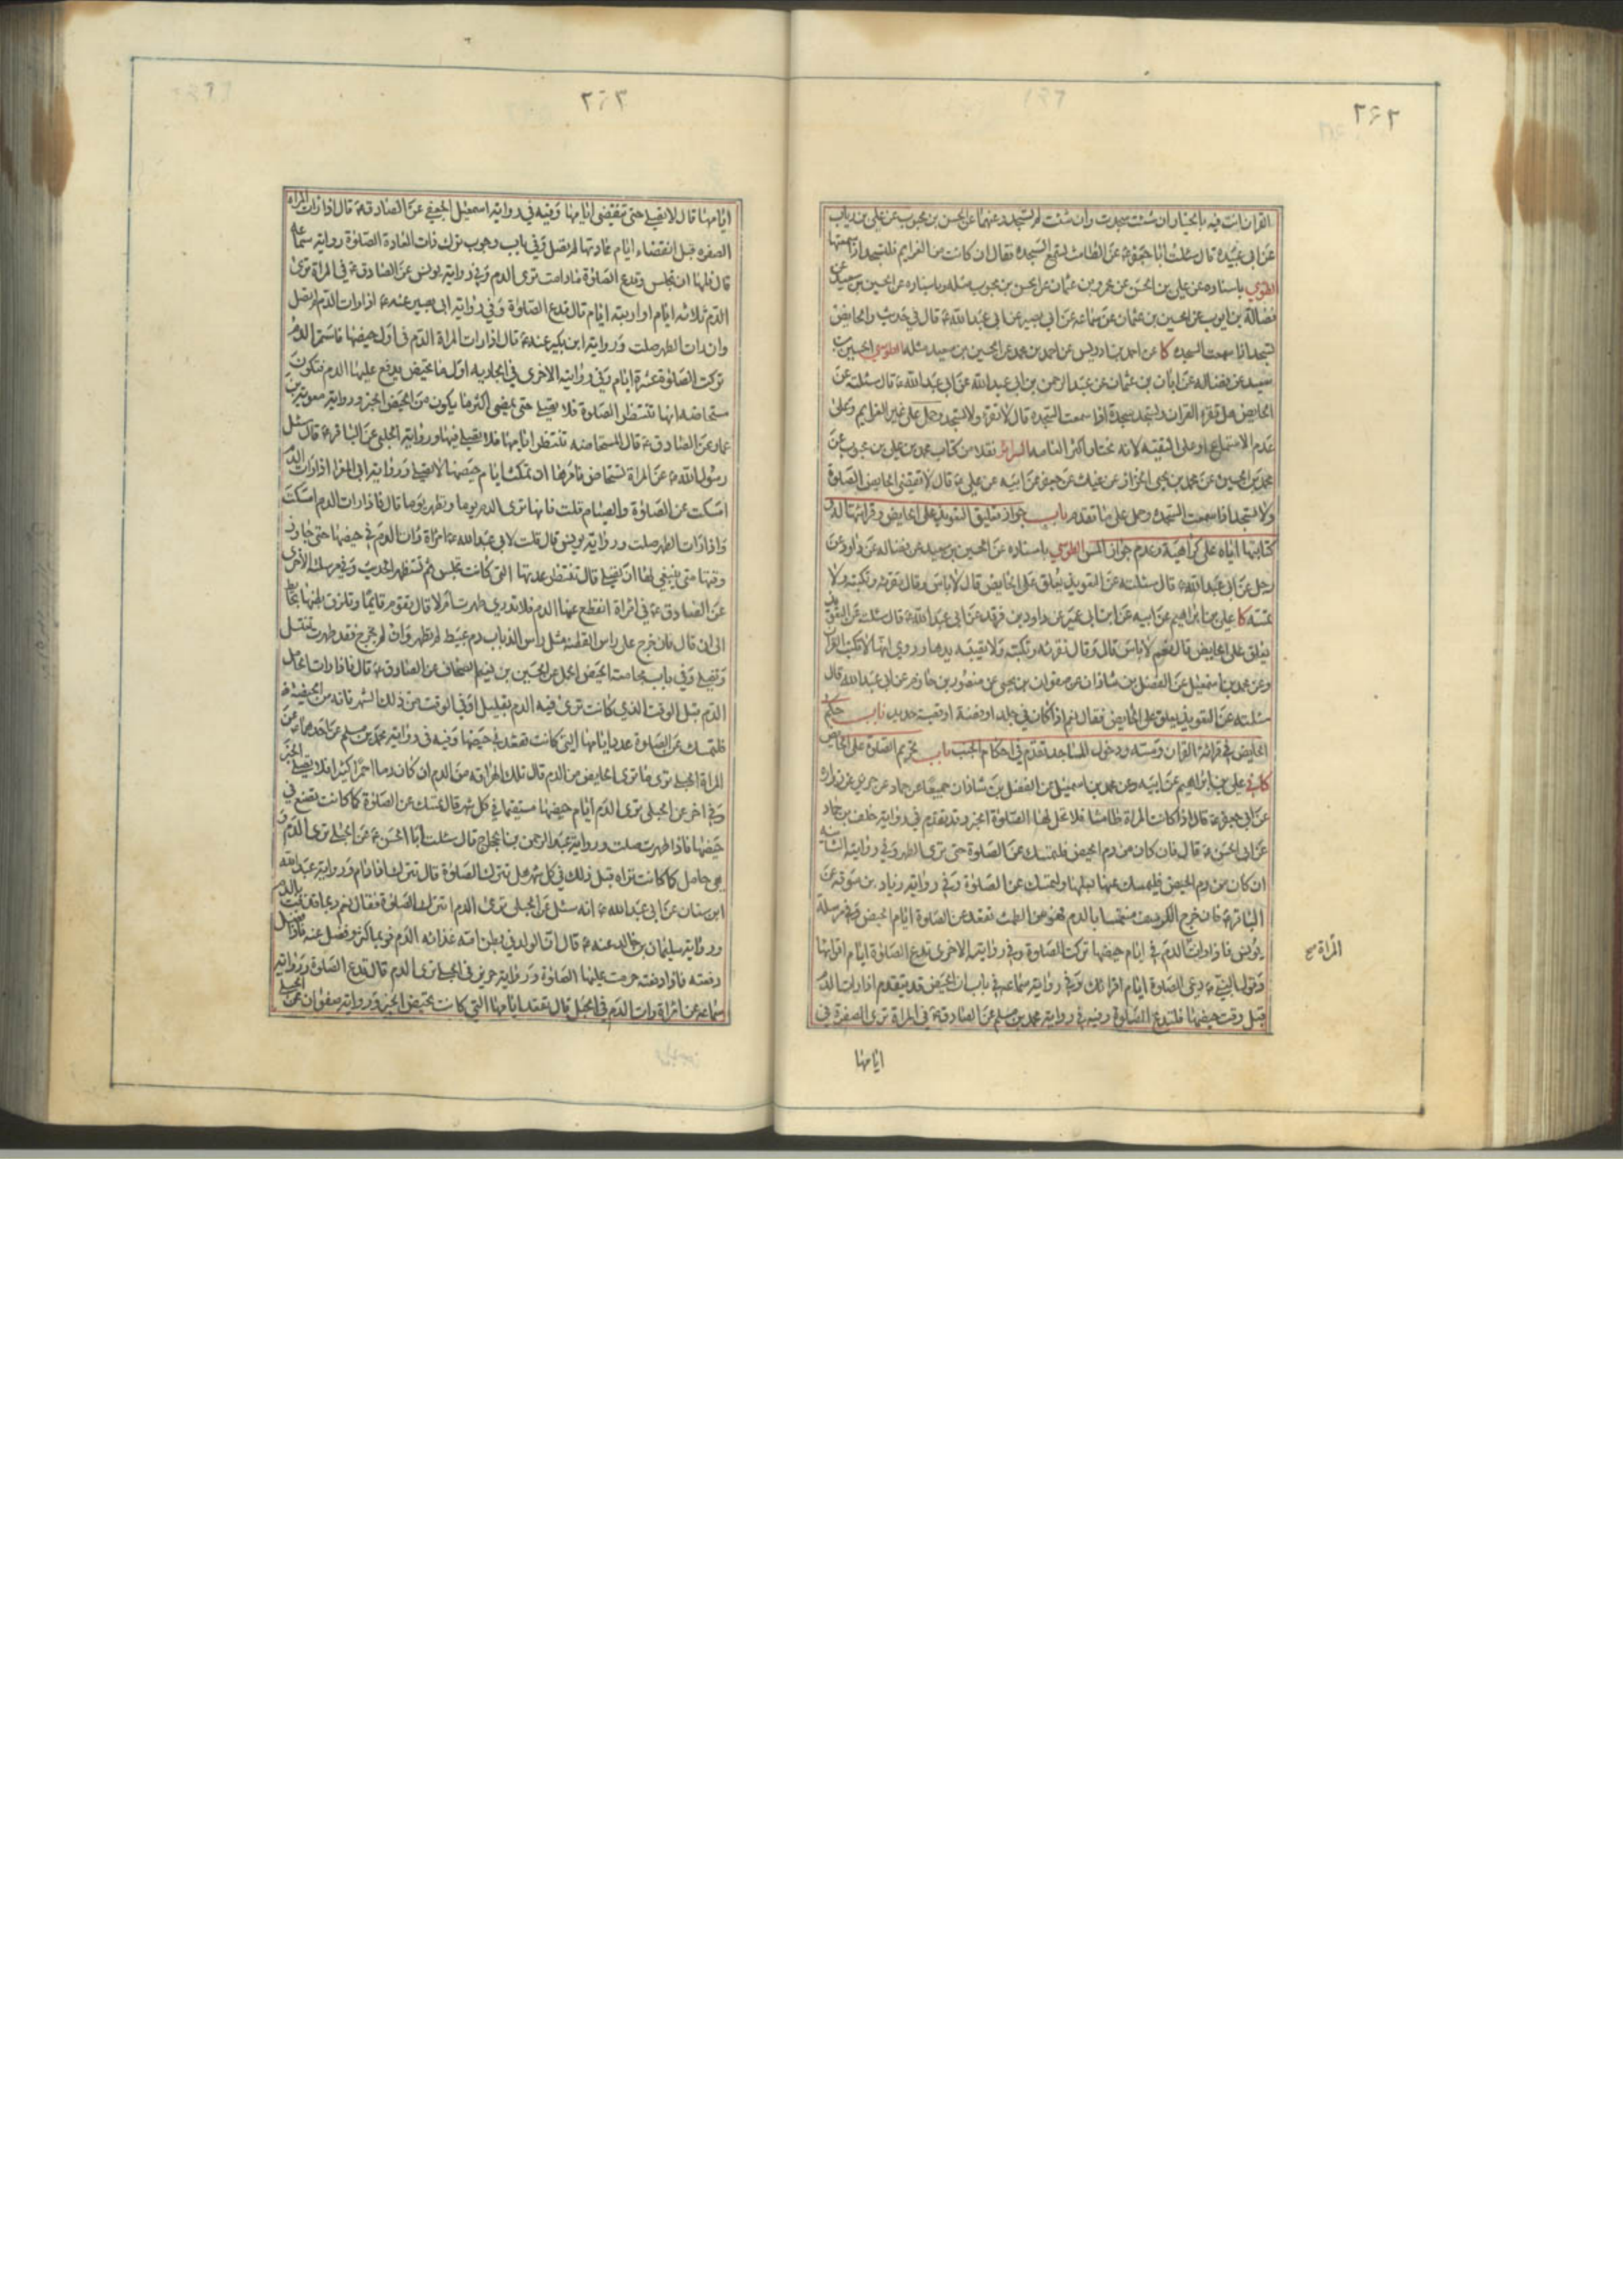 ۲۶۲
القران انت فيه بالخيار ان شئت سجدت وان شئت لم تسجد وعنهما عن الحسن بن محبوب عن علي بن رياب
عن ابي عبيدة قال سئلت ابا جعفر ع عن الطامث تسمع السجدة فقال ان كانت من العزايم فلتسجد اذا سمعتها
الطوسي باسناده عن علي بن الحسن عن عمرو بن عثمان عن الحسن بن محبوب مثله وباسناده عن الحسين بن سعيد عن
فضالة بن ايوب عن الحسين بن عثمان عن سماعه عن ابي بصير عن ابي عبد الله ع قال في حديث والحايض
تسجد اذا سمعت السجده كا عن احمد بن ادريس عن احمد بن محمد عن الحسين بن سعيد مثله الطوسي الحسين بن
سعيد عن فضاله عن ابان بن عثمان عن عبد الرحمن بن ابي عبد الله عن ابي عبد الله ع قال سئلته عن
الحايض هل تقرء القران وتسجد سجدة اذا سمعت السجده قال لا تقرء ولا تسجد وحمل على غير العزايم وعلى
عدم الاستماع او على التقية لانه مختار اكثر العامه السرائر نقلا من كتاب محمد بن علي بن محبوب عن
محمد بن الحسين عن محمد بن يحيى الخزاز عن غياث عن جعفر عن ابيه عن علي ع قال لا تقضي الحايض الصلوة
ولا تسجد اذا سمعت السجده وحمل على ما تقدم باب جواز تعليق التعويذ على الحايض وقرائتها له و
كتابتها اياه على كراهية وعدم جواز المس الطوسي باسناده عن الحسين بن سعيد عن فضاله عن داود عن
رجل عن ابي عبد الله ع قال سئلته عن التعويذ يعلق على الحايض قال لا باس وقال تقرئه وتكتبه ولا
تمسه كا علي بن ابراهيم عن ابيه عن ابن ابي عمير عن داود بن فرقد عن ابي عبد الله ع قال سئلت عن التعويذ
يعلق على الحايض قال نعم لا باس قال وقال تقرئه وتكتبه ولا تصيبه يدها وروي انها لا تكتب القران
وعن محمد بن اسمعيل عن الفضل بن شاذان عن صفوان بن يحيى عن منصور بن حازم عن ابي عبد الله قال
سئلته عن التعويذ يعلق على الحايض فقال نعم اذا كان في جلد او فضة او قصبة حديد باب حكم
الحايض في قرائة القران ومسه ودخول المساجد تقدم في احكام الجنب باب تحريم الصلوة على الحايض
كافي علي بن ابراهيم عن ابيه وعن محمد بن اسمعيل عن الفضل بن شاذان جميعا عن حماد عن حريز عن زراره
عن ابي جعفر ع قال اذا كانت المراة طامثا فلا تحل لها الصلوة الخبر وقد تقدم في رواية خلف بن حماد
عن ابي الحسن ع قال فان كان من دم الحيض فلتمسك عن الصلوة حتى ترى الطهر وفي روايته الثانيه
ان كان من دم الحيض فليمسك عنها بعلها ولتمسك عن الصلوة وفي رواية زياد بن سوقه عن
الباقر ع فان خرج الكرسف منغمسا بالدم فهو من الطمث تقعد عن الصلوة ايام الحيض وفي مرسلة
يونس فاذا رات الدم في ايام حيضها تركت الصلوة وفي روايته الاخرى تدع الصلوة ايام اقرائها
وقول النبي ص دعي الصلوة ايام اقرائك وفي رواية سماعه في باب ان الحيض قد يتقدم اذا رات الدم
قبل وقت حيضها فلتدع الصلوة وفيه في رواية محمد بن مسلم عن الصادق ع في المراة ترى الصفرة في
المراة صح
ايامها
۲۶۳
ايامها قال لا تصلي حتى تنقضي ايامها وفيه في رواية اسمعيل الجعفي عن الصادق ع قال اذا رات المراة
الصفره قبل انقضاء ايام عادتها لم تصل وفي باب وجوب ترك ذات العادة الصلوة رواية سماعه
قال فلها ان تجلس وتدع الصلوة مادامت ترى الدم وفي رواية يونس عن الصادق ع في المراة ترى
الدم ثلاثه ايام او اربعه ايام قال تدع الصلوة وفي رواية ابي بصير عنه ع اذا رات الدم لم تصل
وان رات الطهر صلت ورواية ابن بكير عنه ع قال اذا رات المراة الدم في اول حيضها فاستمر الدم
تركت الصلوة عشرة ايام وفي روايته الاخرى في الجاريه اول ما تحيض يدفع عليها الدم فتكون
مستحاضه انها تنتظر الصلوة فلا تصلي حتى يمضي اكثر ما يكون من الحيض الخبر ورواية معوية بن
عمار عن الصادق ع قال المستحاضه تنتظر ايامها فلا تصلي فيها ورواية الحلبي عن الباقر ع قال سئل
رسول الله ص عن المراة تستحاض فامرها ان تمكث ايام حيضها لا تصلي ورواية ابي المغرا اذا رات الدم
امسكت عن الصلوة والصيام قلت فانها ترى الدم يوما وتطهر يوما قال فاذا رات الدم امسكت
واذا رات الطهر صلت ورواية يونس قال قلت لابي عبد الله ع امراة رات الدم في حيضها حتى جاوز
وقتها متى ينبغي لها ان تصلي قال تنتظر عدتها التي كانت تجلس ثم تستظهر الحديث وفي مرسلته الاخرى
عن الصادق ع في امراة انقطع عنها الدم فلا تدري طهرت ام لا قال تقوم قايما وتلزق بطنها بحايط
الى ان قال فان خرج على راس القطنه مثل راس الذباب دم عبيط لم تطهر وان لم يخرج فقد طهرت تغتسل
وتصلي وفي باب مجامعة الحيض الحمل عن الحسين بن نعيم الصحاف عن الصادق ع قال فاذا رات الحامل
الدم قبل الوقت الذي كانت ترى فيه الدم بقليل او في الوقت من ذلك الشهر فانه من الحيضة
فلتمسك عن الصلوة عدد ايامها التي كانت تقعد في حيضها وفيه في رواية محمد بن مسلم عن احدهما عن
المراة الحبلى ترى ما ترى الحايض من الدم قال تلك الهراقه من الدم ان كان دما احمر كثيرا فلا تصلي الخبر
وفي اخر عن الحبلى ترى الدم ايام حيضها مستقيما في كل شهر قال تمسك عن الصلوة كما كانت تصنع في
حيضها فاذا طهرت صلت ورواية عبد الرحمن بن الحجاج قال سئلت ابا الحسن ع عن الحبلى ترى الدم و
هي حامل كما كانت تراه قبل ذلك في كل شهر هل تترك الصلوة قال تترك اذا دام ورواية عبد الله
ابن سنان عن ابي عبد الله ع انه سئل عن الحبلى ترى الدم اتترك الصلوة فقال نعم ربما قذفت بالدم
ورواية سليمان بن خالد عنه ع قال ان الولد في بطن امه غذائه الدم فربما كثر وفضل عنه فاذا فضل
دفعته فاذا دفعته حرمت عليها الصلوة ورواية حريز في الحبلى ترى الدم قال تدع الصلوة ورواية
سماعه عن امراة رات الدم في الحبل قال تقعد ايامها التي كانت تحيض الخبر ورواية صفوان عن الحبلى